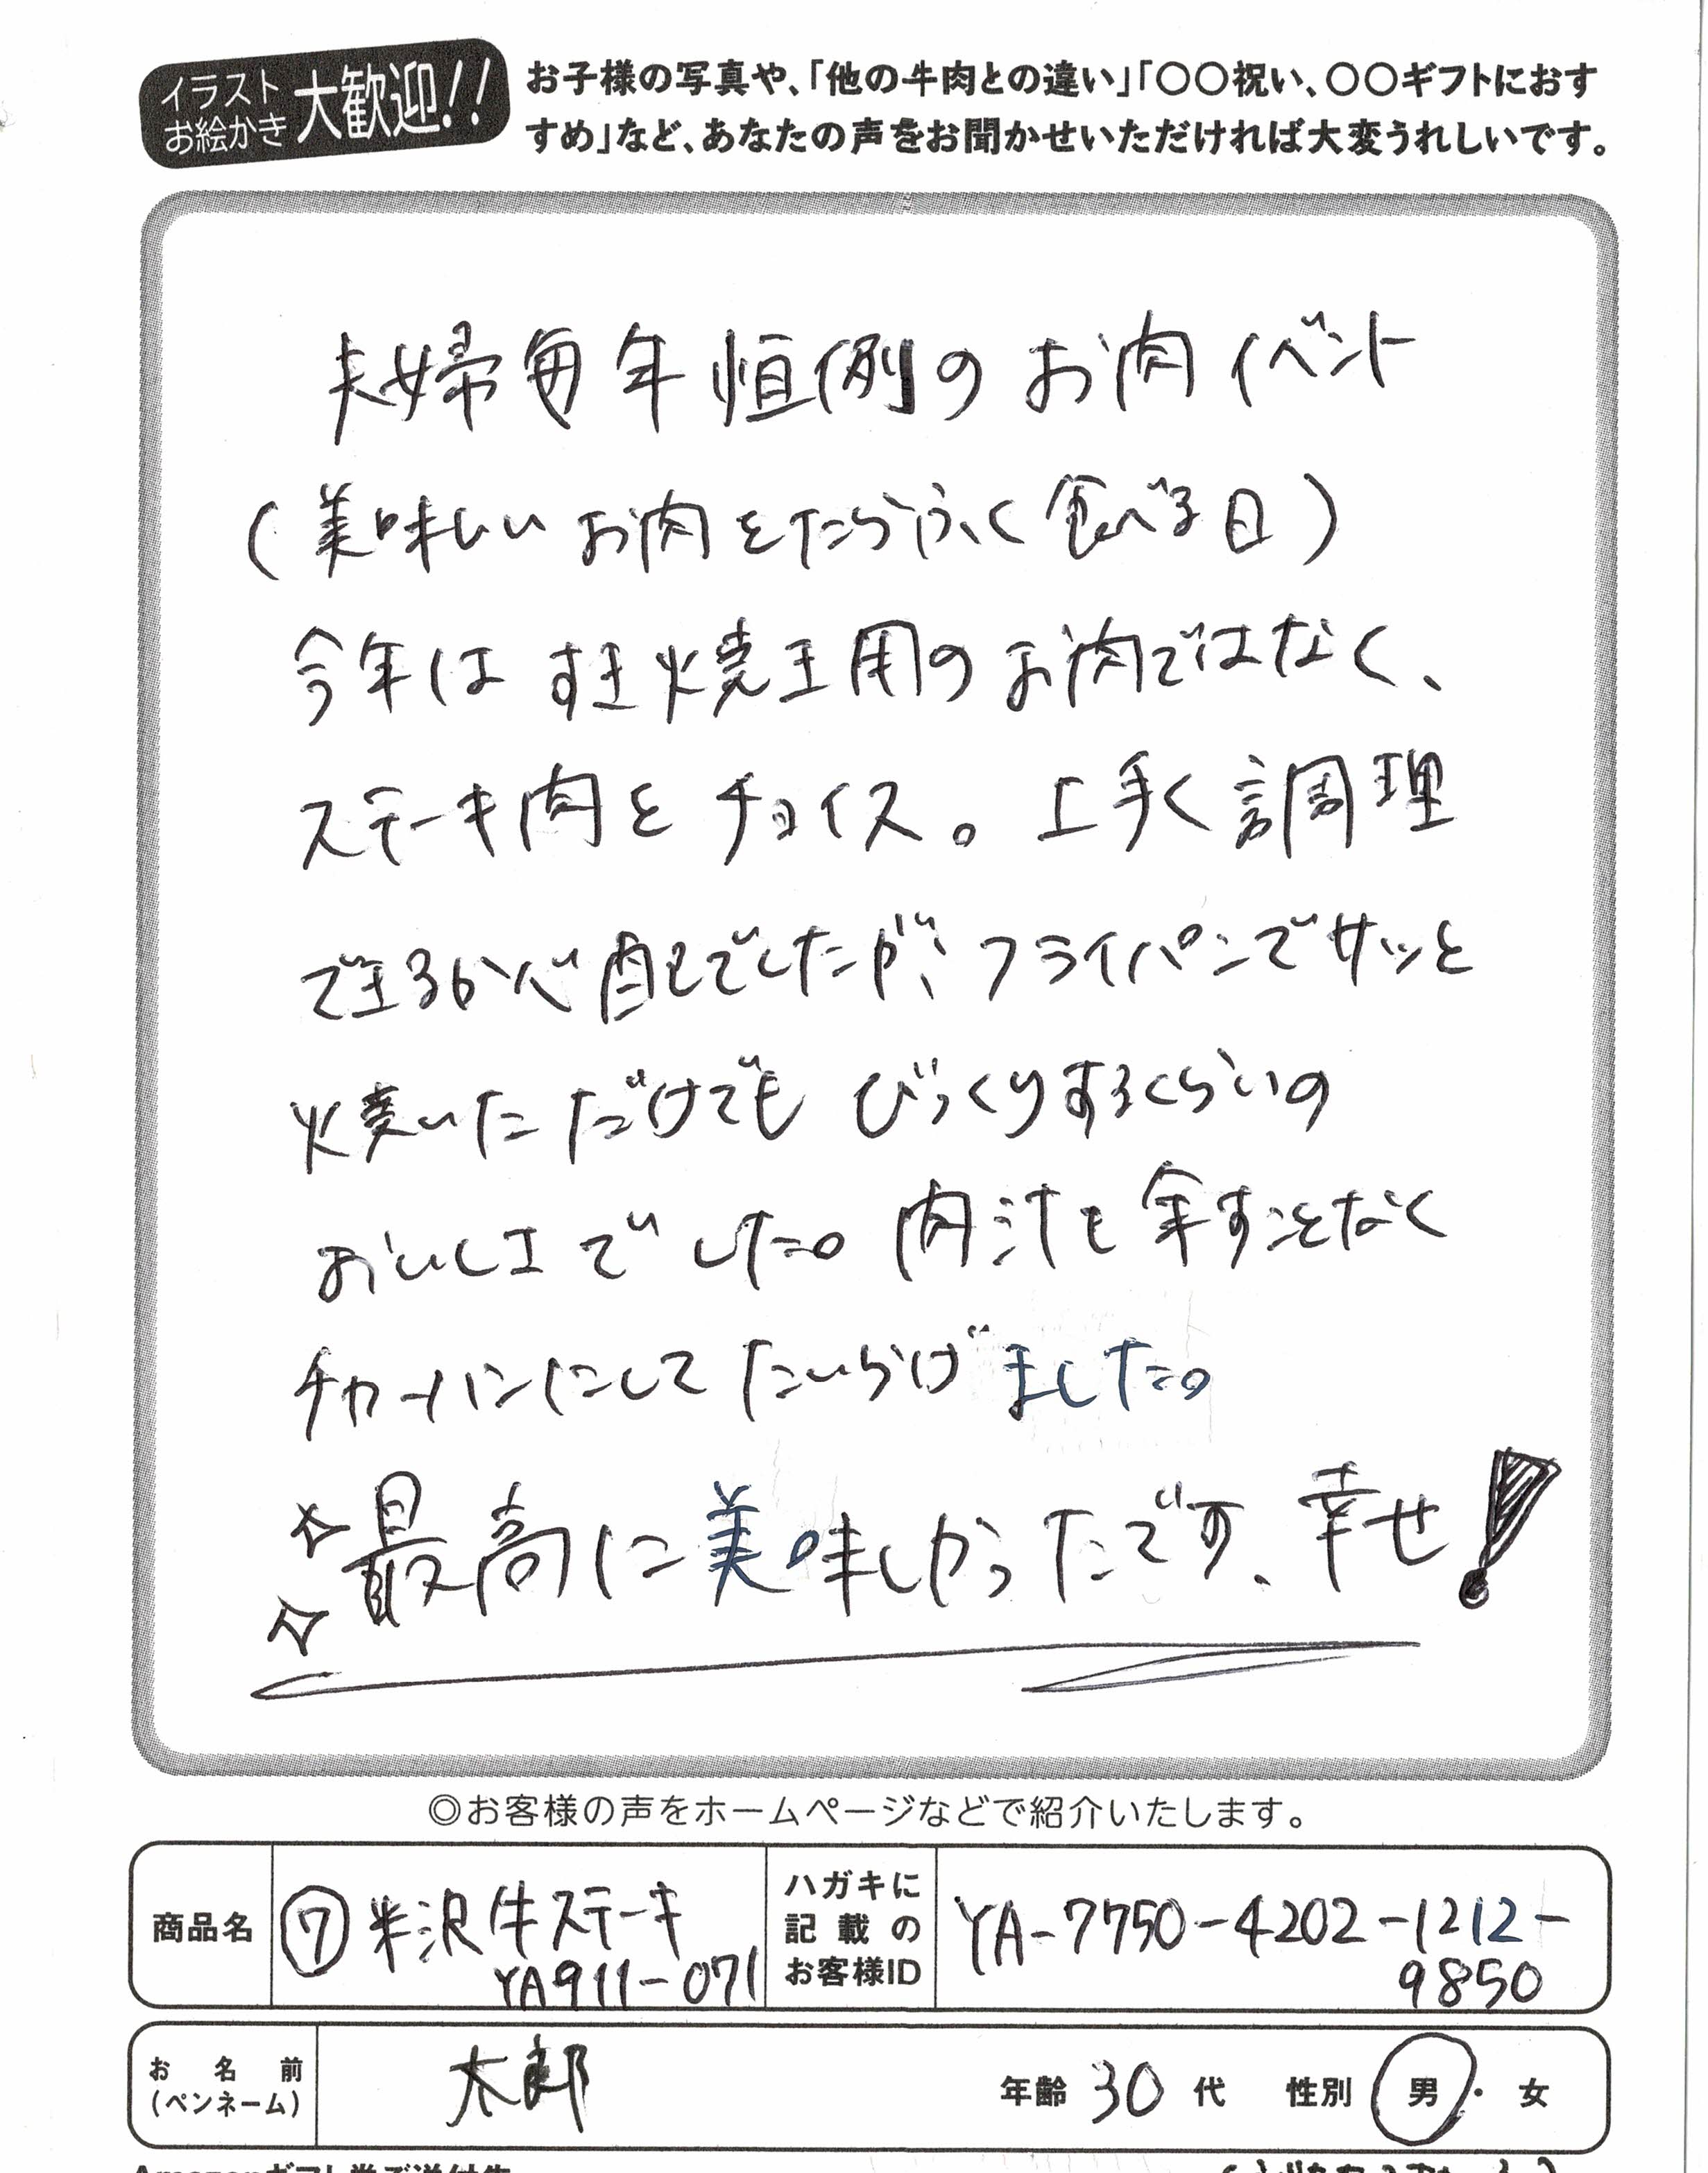 イラスト
お絵かき
大歓迎!!
お子様の写真や、「他の牛肉との違い」「〇〇祝い、〇〇ギフトにおす
すめ」など、あなたの声をお聞かせいただければ大変うれしいです。
夫婦毎年恒例のお肉イベント
(美味しいお肉をたらふく食べる日)
今年はすき焼き用のお肉ではなく、
ステーキ肉をチョイス。上手く調理
できるか心配でしたが、フライパンでサッと
焼いただけでもびっくりするくらいの
おいしさでした。肉汁も余すことなく
チャーハンにしてたいらげました。
最高に美味しかったです、幸せ!
◎お客様の声をホームページなどで紹介いたします。
商品名
⑦米沢牛ステーキ
YA911-071
ハガキに
記載の
お客様ID
YA-7750-4202-1212-
9850
お名前
(ペンネーム)
太郎
年齢 30 代 性別 男・女
Amazonギフト券ご送付先